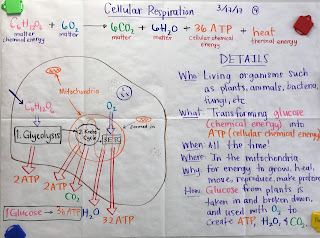 Cellular Respiration 3/12/17
C6H12O6 + 6O2 → 6CO2 + 6H2O + 36 ATP + heat
matter matter matter matter cellular chemical energy thermal energy
chemical energy
DETAILS
Who: Living organisms such
as plants, animals, bacteria,
fungi, etc.
What: Transforming glucose
(chemical energy) into
ATP (cellular chemical energy)
When: All the time!
Where: In the mitochondria
Why: for energy to grow, heal,
move, reproduce, make proteins
How: Glucose from plants is
taken in and broken down,
and used with O2 to
create ATP, H2O, & CO2.
Mitochondria
C6H12O6
O2
1. Glycolysis
2. Krebs
Cycle
3. ETC
2 ATP
2 ATP
CO2
H2O
32 ATP
1 Glucose → 36 ATP